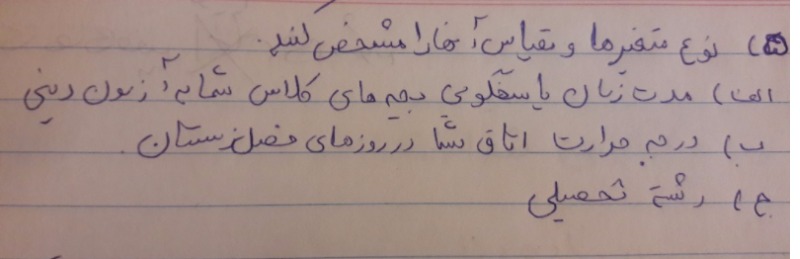 ۵) نوع متغیرها و مقیاس آنها را مشخص کنید.
الف) مدت زمان پاسخگویی بچه های کلاس شما به آزمون دینی
ب) درجه حرارت اتاق شما در روزهای فصل زمستان.
ج) رشتهٔ تحصیلی